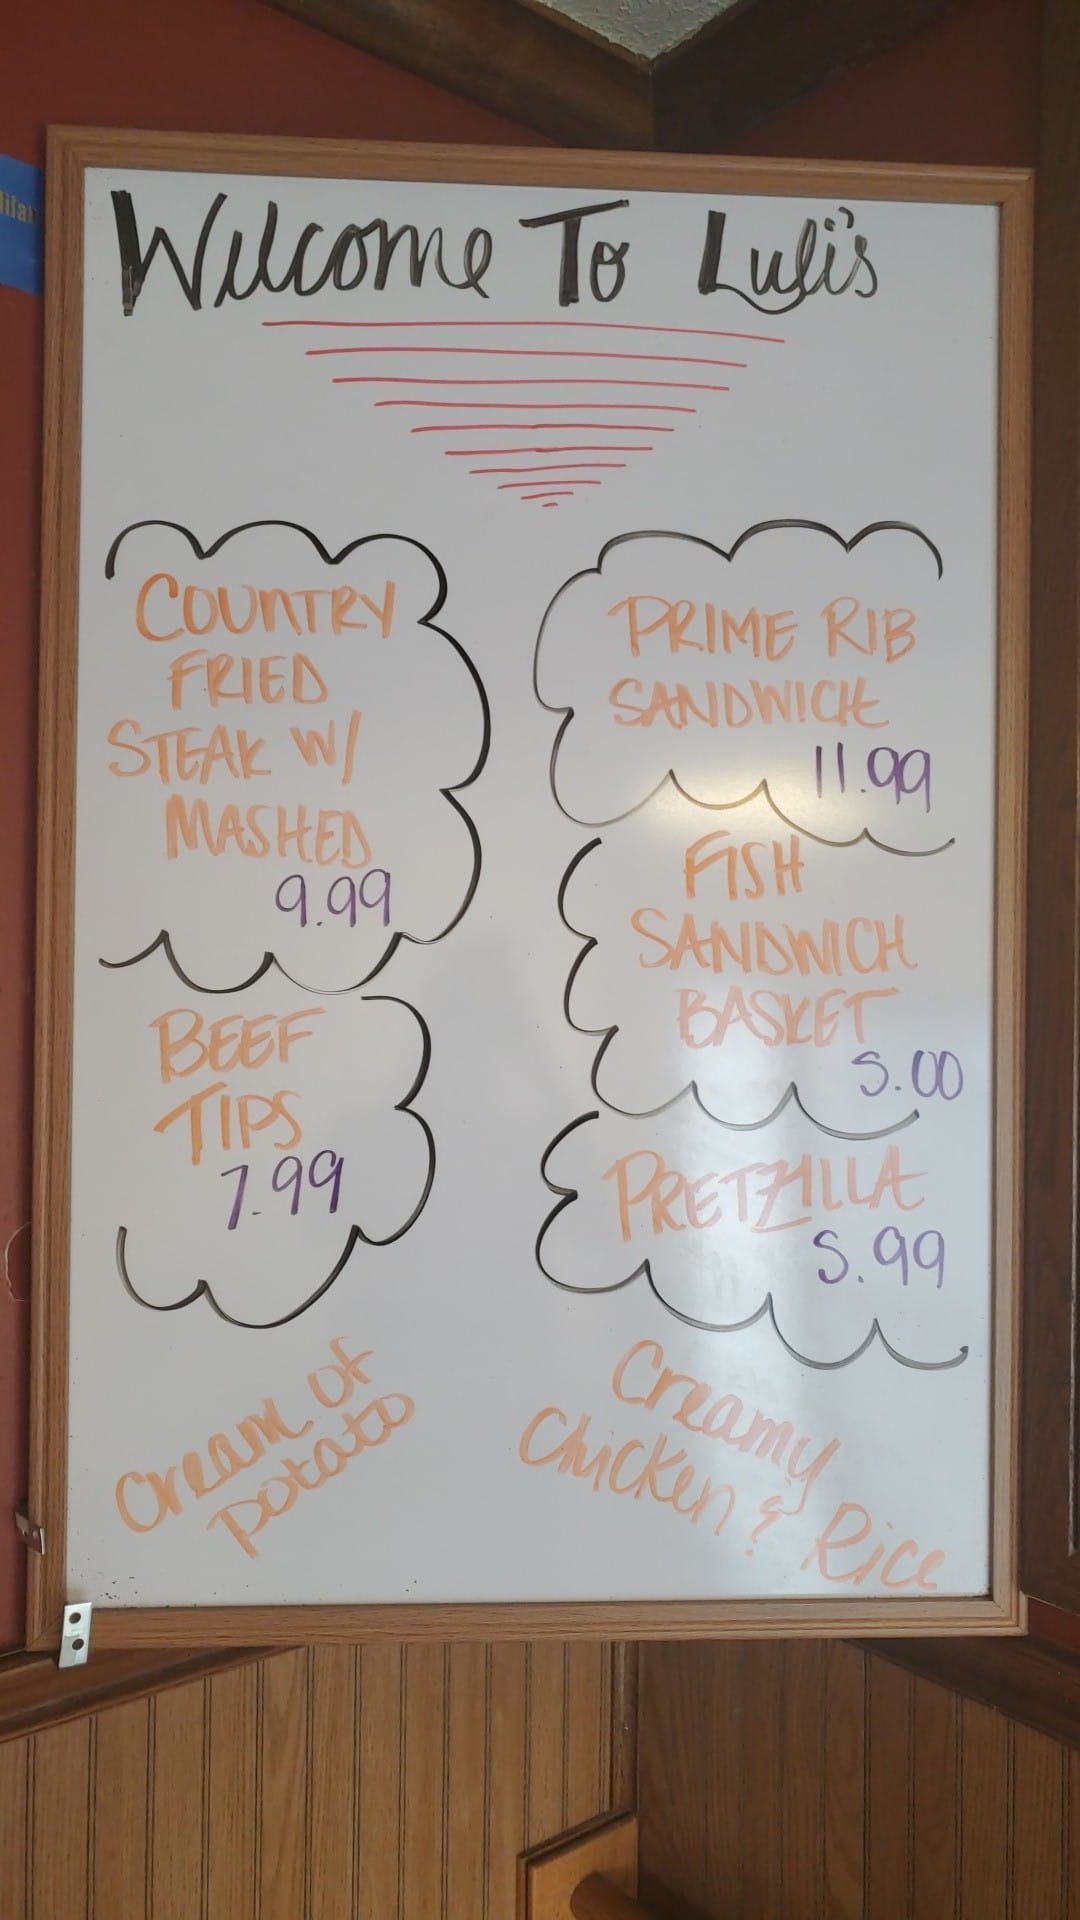 Welcome To Luli's
COUNTRY
FRIED
STEAK W/
MASHED
9.99
BEEF
TIPS
7.99
PRIME RIB
SANDWICH
11.99
FISH
SANDWICH
BASKET
5.00
PRETZILLA
5.99
Cream of
potato
Creamy
Chicken & Rice